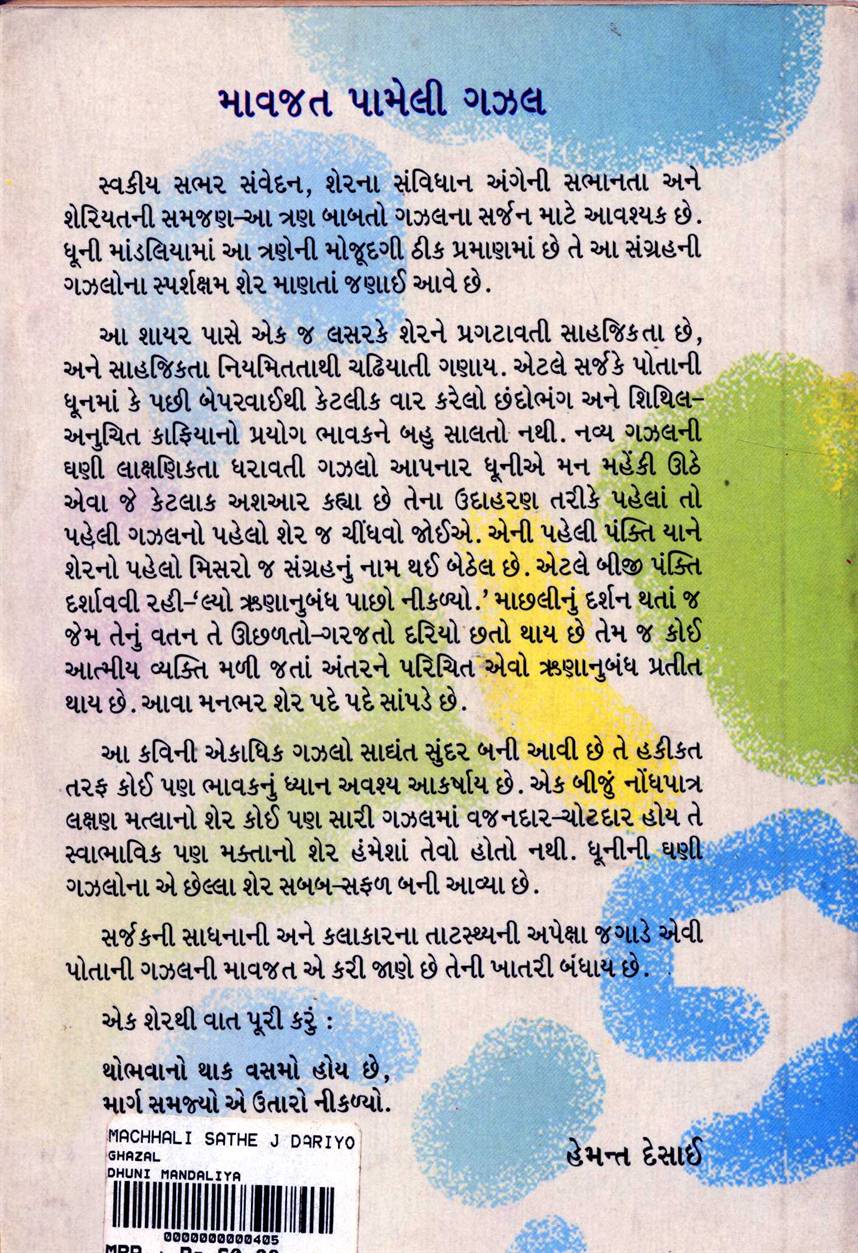 માવજત પામેલી ગઝલ
સ્વકીય સભર સંવેદન, શેરના સંવિધાન અંગેની સભાનતા અને
શેરિયતની સમજણ–આ ત્રણ બાબતો ગઝલના સર્જન માટે આવશ્યક છે.
ધૂની માંડલિયામાં આ ત્રણેની મોજૂદગી ઠીક પ્રમાણમાં છે તે આ સંગ્રહની
ગઝલોના સ્પર્શક્ષમ શેર માણતાં જણાઈ આવે છે.
આ શાયર પાસે એક જ લસરકે શેરને પ્રગટાવતી સાહજિકતા છે,
અને સાહજિકતા નિયમિતતાથી ચઢિયાતી ગણાય. એટલે સર્જકે પોતાની
ધૂનમાં કે પછી બેપરવાઈથી કેટલીક વાર કરેલો છંદોભંગ અને શિથિલ–
અનુચિત કાફિયાનો પ્રયોગ ભાવકને બહુ સાલતો નથી. નવ્ય ગઝલની
ઘણી લાક્ષણિકતા ધરાવતી ગઝલો આપનાર ધૂનીએ મન મહેંકી ઊઠે
એવા જે કેટલાક અશઆર કહ્યા છે તેના ઉદાહરણ તરીકે પહેલાં તો
પહેલી ગઝલનો પહેલો શેર જ ચીંધવો જોઈએ. એની પહેલી પંક્તિ યાને
શેરનો પહેલો મિસરો જ સંગ્રહનું નામ થઈ બેઠેલ છે. એટલે બીજી પંક્તિ
દર્શાવવી રહી–‘લ્યો ઋણાનુબંધ પાછો નીકળ્યો.’ માછલીનું દર્શન થતાં જ
જેમ તેનું વતન તે ઊછળતો–ગરજતો દરિયો છતો થાય છે તેમ જ કોઈ
આત્મીય વ્યક્તિ મળી જતાં અંતરને પરિચિત એવો ઋણાનુબંધ પ્રતીત
થાય છે. આવા મનભર શેર પદે પદે સાંપડે છે.
આ કવિની એકાધિક ગઝલો સાદ્યંત સુંદર બની આવી છે તે હકીકત
તરફ કોઈ પણ ભાવકનું ધ્યાન અવશ્ય આકર્ષાય છે. એક બીજું નોંધપાત્ર
લક્ષણ મત્લાનો શેર કોઈ પણ સારી ગઝલમાં વજનદાર–ચોટદાર હોય તે
સ્વાભાવિક પણ મક્તાનો શેર હંમેશાં તેવો હોતો નથી. ધૂનીની ઘણી
ગઝલોના એ છેલ્લા શેર સબબ–સફળ બની આવ્યા છે.
સર્જકની સાધનાની અને કલાકારના તાટસ્થ્યની અપેક્ષા જગાડે એવી
પોતાની ગઝલની માવજત એ કરી જાણે છે તેની ખાતરી બંધાય છે.
એક શેરથી વાત પૂરી કરું :
થોભવાનો થાક વસમો હોય છે,
માર્ગ સમજ્યો એ ઉતારો નીકળ્યો.
હેમન્ત દેસાઈ
MACHHALI SATHE J DARIYO
GHAZAL
DHUNI MANDALIYA
0000000000405